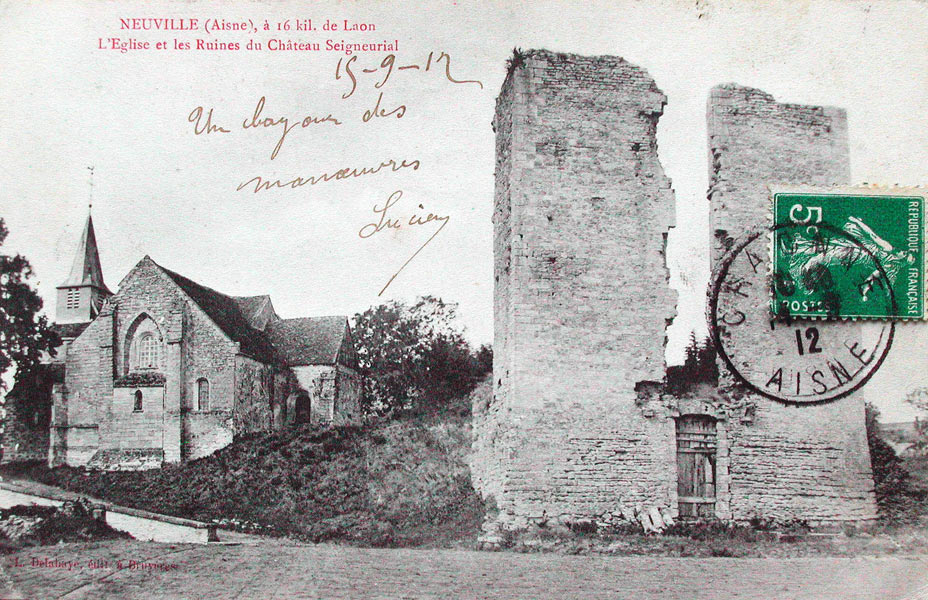 NEUVILLE (Aisne), à 16 kil. de Laon
L'Eglise et les Ruines du Château Seigneurial
15-9-12
Un bonjour des
manœuvres
Lucien
5c
RÉPUBLIQUE FRANÇAISE
POSTES
CRAONNE
12
AISNE
L. Delahaye, édit. à Bruyères